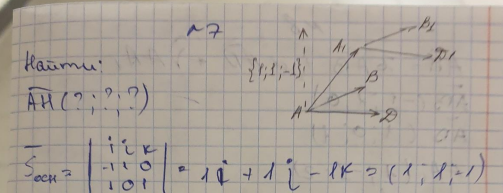 №7
Найти:
AH (?; ?; ?)
{1; 1; -1}
A₁
B₁
D₁
B
A
D
Sосн = | i j k |
| -1 1 0 | = 1i + 1j - 1k = (1; 1; -1)
| 1 0 1 |